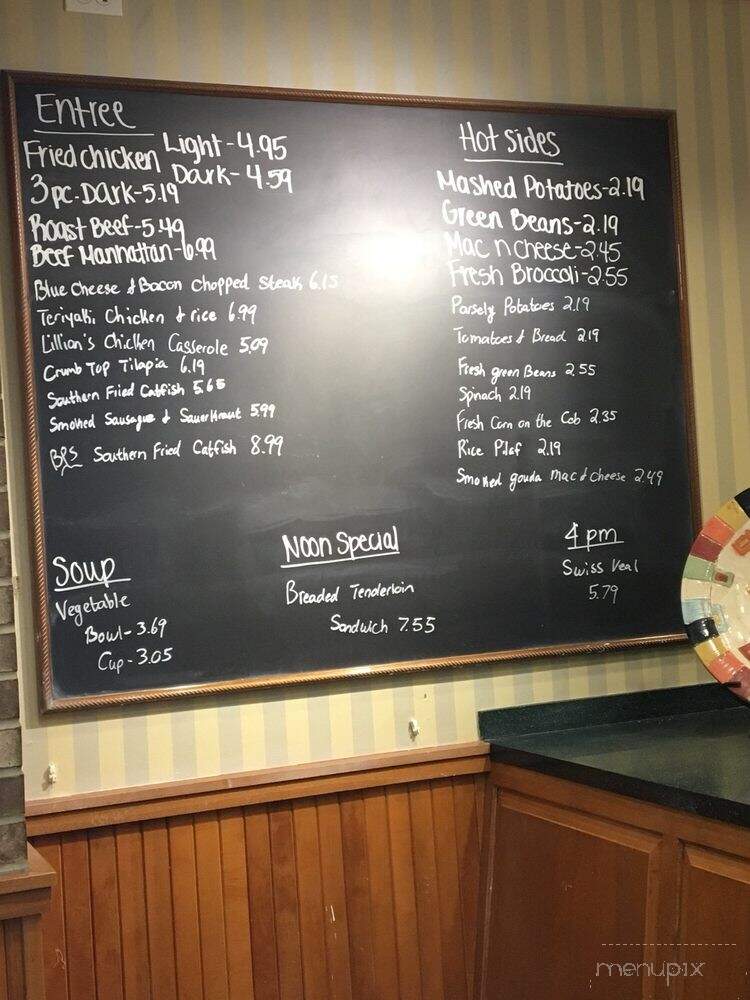 Entree
Fried chicken Light-4.95
Dark-4.59
3pc. Dark-5.19
Roast Beef-5.49
Beef Manhattan-6.99
Blue Cheese & Bacon Chopped Steak 6.15
Teriyaki Chicken & rice 6.99
Lillian's Chicken Casserole 5.09
Crumb Top Tilapia 6.19
Southern Fried Catfish 5.65
Smoked Sausague & Sauerkraut 5.99
Southern Fried Catfish 8.99
Hot Sides
Mashed Potatoes-2.19
Green Beans-2.19
Mac n cheese-2.45
Fresh Broccoli-2.55
Parsely Potatoes 2.19
Tomatoes & Bread 2.19
Fresh green Beans 2.55
Spinach 2.19
Fresh Corn on the Cob 2.35
Rice Pilaf 2.19
Smoked gouda mac & cheese 2.49
Soup
Vegetable
Bowl-3.69
Cup-3.05
Noon Special
Breaded Tenderloin
Sandwich 7.55
4 pm
Swiss Veal
5.79
menupix